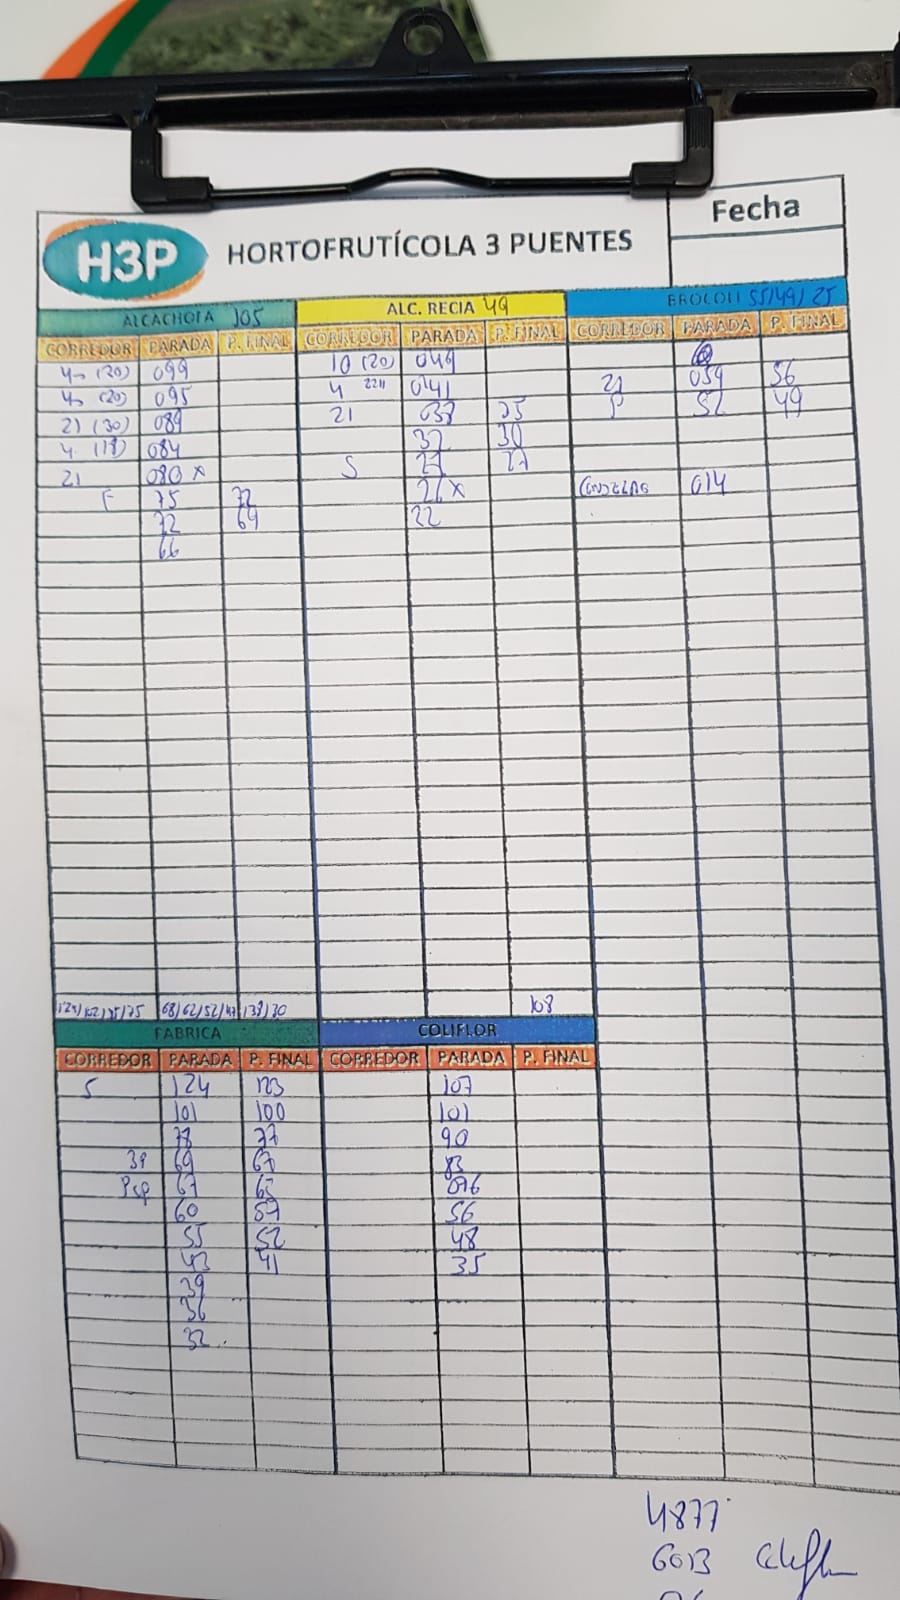 H3P HORTOFRUTÍCOLA 3 PUENTES
Fecha
ALCACHOFA 105
CORREDOR PARADA P. FINAL
4- (20) 099
4- (20) 095
21 (30) 089
4 (18) 084
21 080 x
F 75 72
72 69
66
ALC. RECIA 49
CORREDOR PARADA P. FINAL
10 (20) 049
4 2211 041
21 037 35
32 30
S 27 27
26 x
22
BROCOLI 55/49/25
CORREDOR PARADA P. FINAL
21 059 56
P 52 49
014
68/62/52/47 138/30
FABRICA
CORREDOR PARADA P. FINAL
5 124 123
101 100
78 77
39 69 67
Psp 67 65
60 57
55 52
43 41
39
36
32
108
COLIFLOR
CORREDOR PARADA P. FINAL
107
101
90
83
076
56
48
35
4877
6013